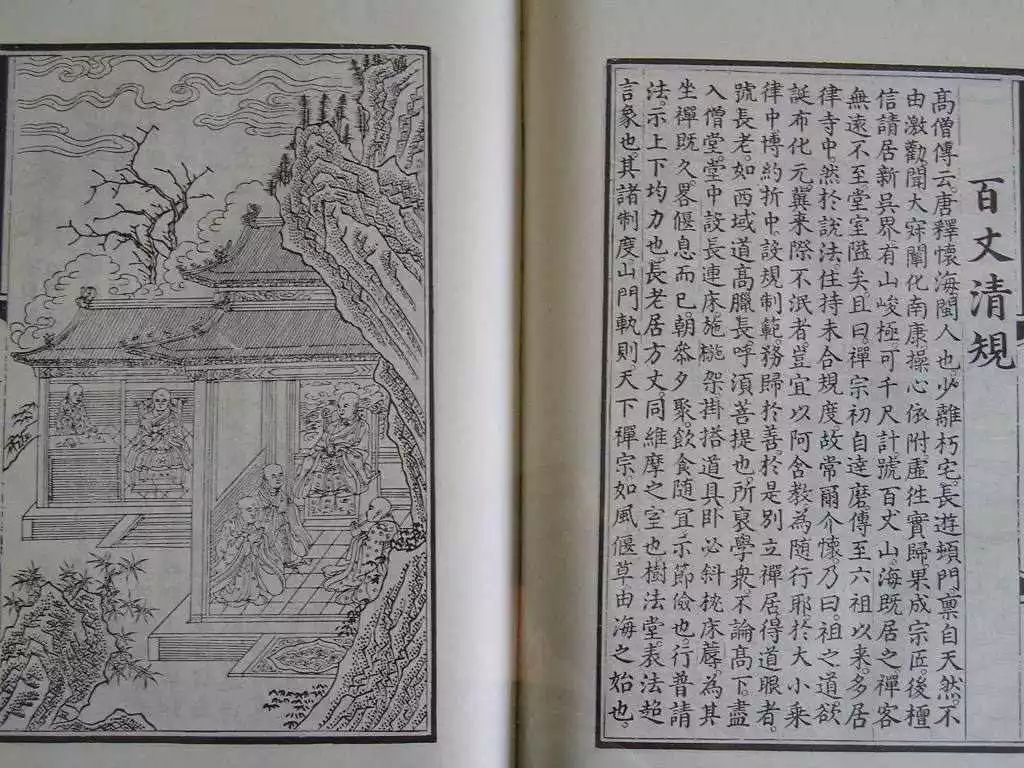 百丈清規
高僧傳云。唐釋懷海閩人也。少離朽宅。長遊頓門。稟自天然。不
由激勸。聞大寂闡化南康。操心依附。虛往實歸。果成宗匠。後檀
信請居新吳界。有山峻極可千尺計。號百丈山。海既居之。禪客
無遠不至。堂室隘矣。且曰。禪宗初自達磨傳至六祖以來。多居
律寺中。然於說法住持未合規度。故常爾介懷。乃曰。祖之道欲
誕布化元。冀來際不泯者。豈宜以阿含教為隨行耶。於大小乘
律中博約折中。設規制範。務歸於善。於是別立禪居。得道眼者。
號長老。如西域道高臘長。呼須菩提也。所裒學衆。不論高下。盡
入僧堂。堂中設長連床。施椸架掛搭道具。臥必斜枕床蓐。為其
坐禪既久。畧偃息而已。朝叅夕聚。飲食隨宜。示節儉也。行普請
法。示上下均力也。長老居方丈。同維摩之室也。樹法堂。表法超
言象也。其諸制度山門軌則。天下禪宗。如風偃草。由海之始也。